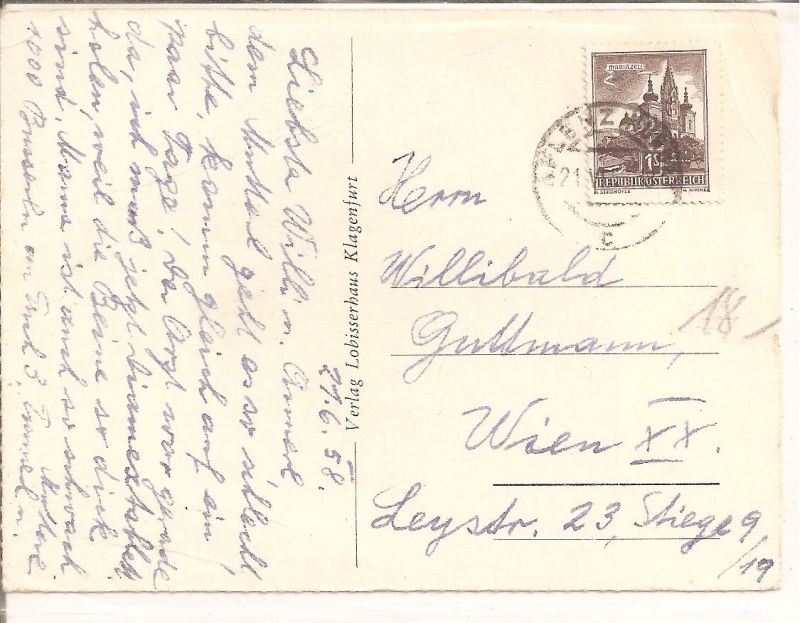 21.6.58.
Liebste Willi u. Annerl
dem Muttal geht es so schlecht
bitte, komm gleich auf ein
paar Tage! Der Arzt war gerade
da, ich muß jetzt
holen, weil die Beine so dick
sind. Mama ist auch so schwach
1000 Busserln an Euch 3,
Verlag Lobisserhaus Klagenfurt
MARIAZELL
1S
REPUBLIK ÖSTERREICH
c
Herrn
Willibald
Guttmann,
Wien XX.
Leystr. 23, Stiege 9
/19
18-